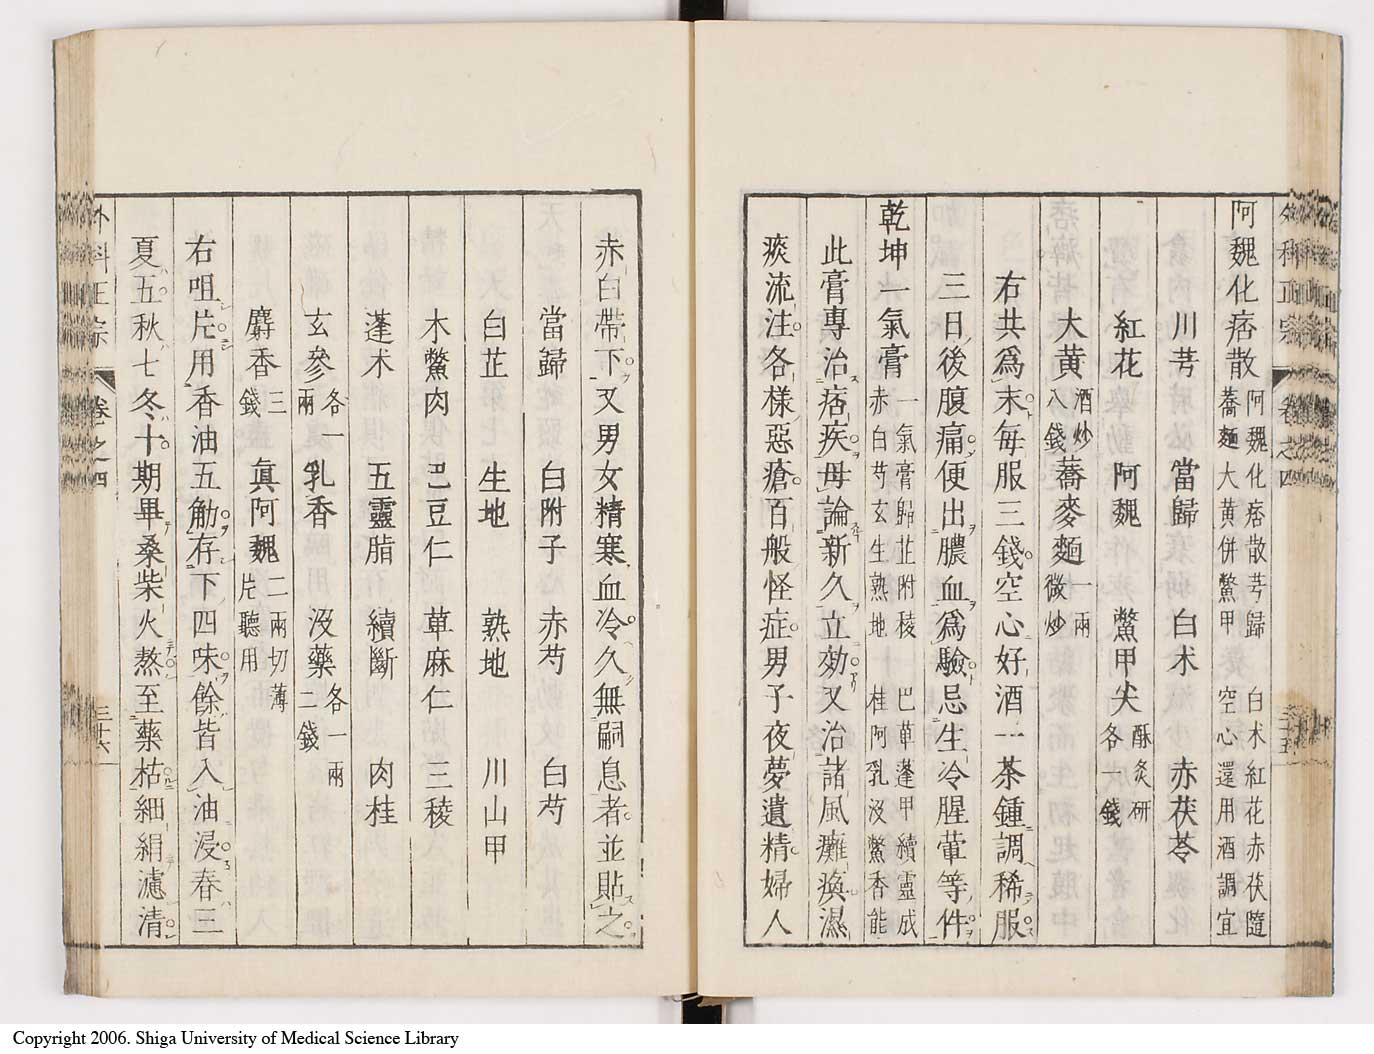 阿魏化痞散 阿魏化痞散芎歸 白朮紅花赤茯隨 蕎麵大黃併鱉甲 空心還用酒調宜
川芎 當歸 白朮 赤茯苓
紅花 阿魏 鱉甲尖 酥炙研 各一錢
大黃 酒炒 八錢 蕎麥麵 一兩 微炒
右共為末每服三錢空心好酒一茶鍾調稀服
三日後腹痛便出膿血為驗忌生冷腥葷等件
乾坤一氣膏 一氣膏歸芷附稜 巴草蓬甲續靈成 赤白芍玄生熟地 桂阿乳沒鱉香能
此膏專治痞疾毋論新久立効又治諸風癱瘓濕
痰流注各樣惡瘡百般怪症男子夜夢遺精婦人
赤白帶下又男女精寒血冷久無嗣息者並貼之
當歸 白附子 赤芍 白芍
白芷 生地 熟地 川山甲
木鱉肉 巴豆仁 草麻仁 三稜
蓬朮 五靈脂 續斷 肉桂
玄參 各一兩 乳香 沒藥 各一兩二錢
麝香 三錢 真阿魏 二兩切薄片聽用
右咀片用香油五觔存下四味餘皆入油浸春三
夏五秋七冬十期畢桑柴火熬至藥枯細絹濾清
外科正宗 卷之四 三十六
Copyright 2006. Shiga University of Medical Science Library